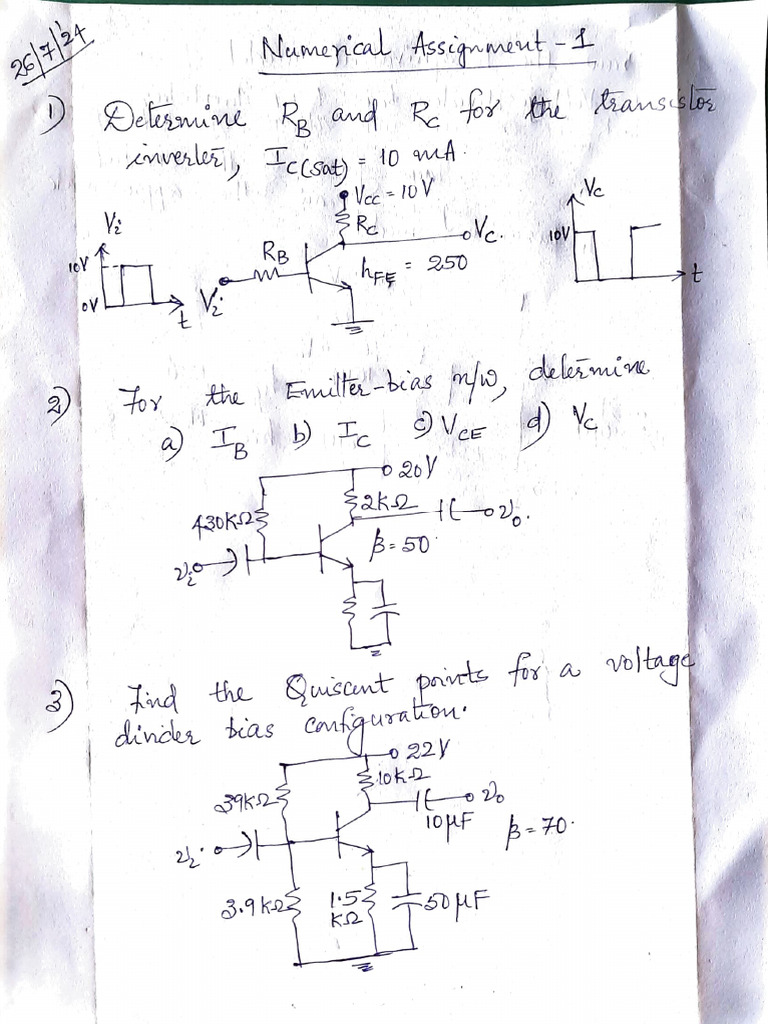 26/7/24
Numerical Assignment - 1
1) Determine R_B and R_C for the transistor
inverter, I_C(sat) = 10 mA.
Vcc = 10V
R_C
V_C
R_B
h_FE = 250
V_i
V_i
10V
0V
t
V_C
10V
t
2) For the Emitter-bias n/w, determine
a) I_B b) I_C c) V_CE d) V_C
20V
430KΩ
2KΩ
v_o.
β = 50
v_i
3) Find the Quiscent points for a voltage
divider bias configuration.
22V
39KΩ
10KΩ
v_o
10μF
β = 70.
v_i
3.9KΩ
1.5
KΩ
50μF